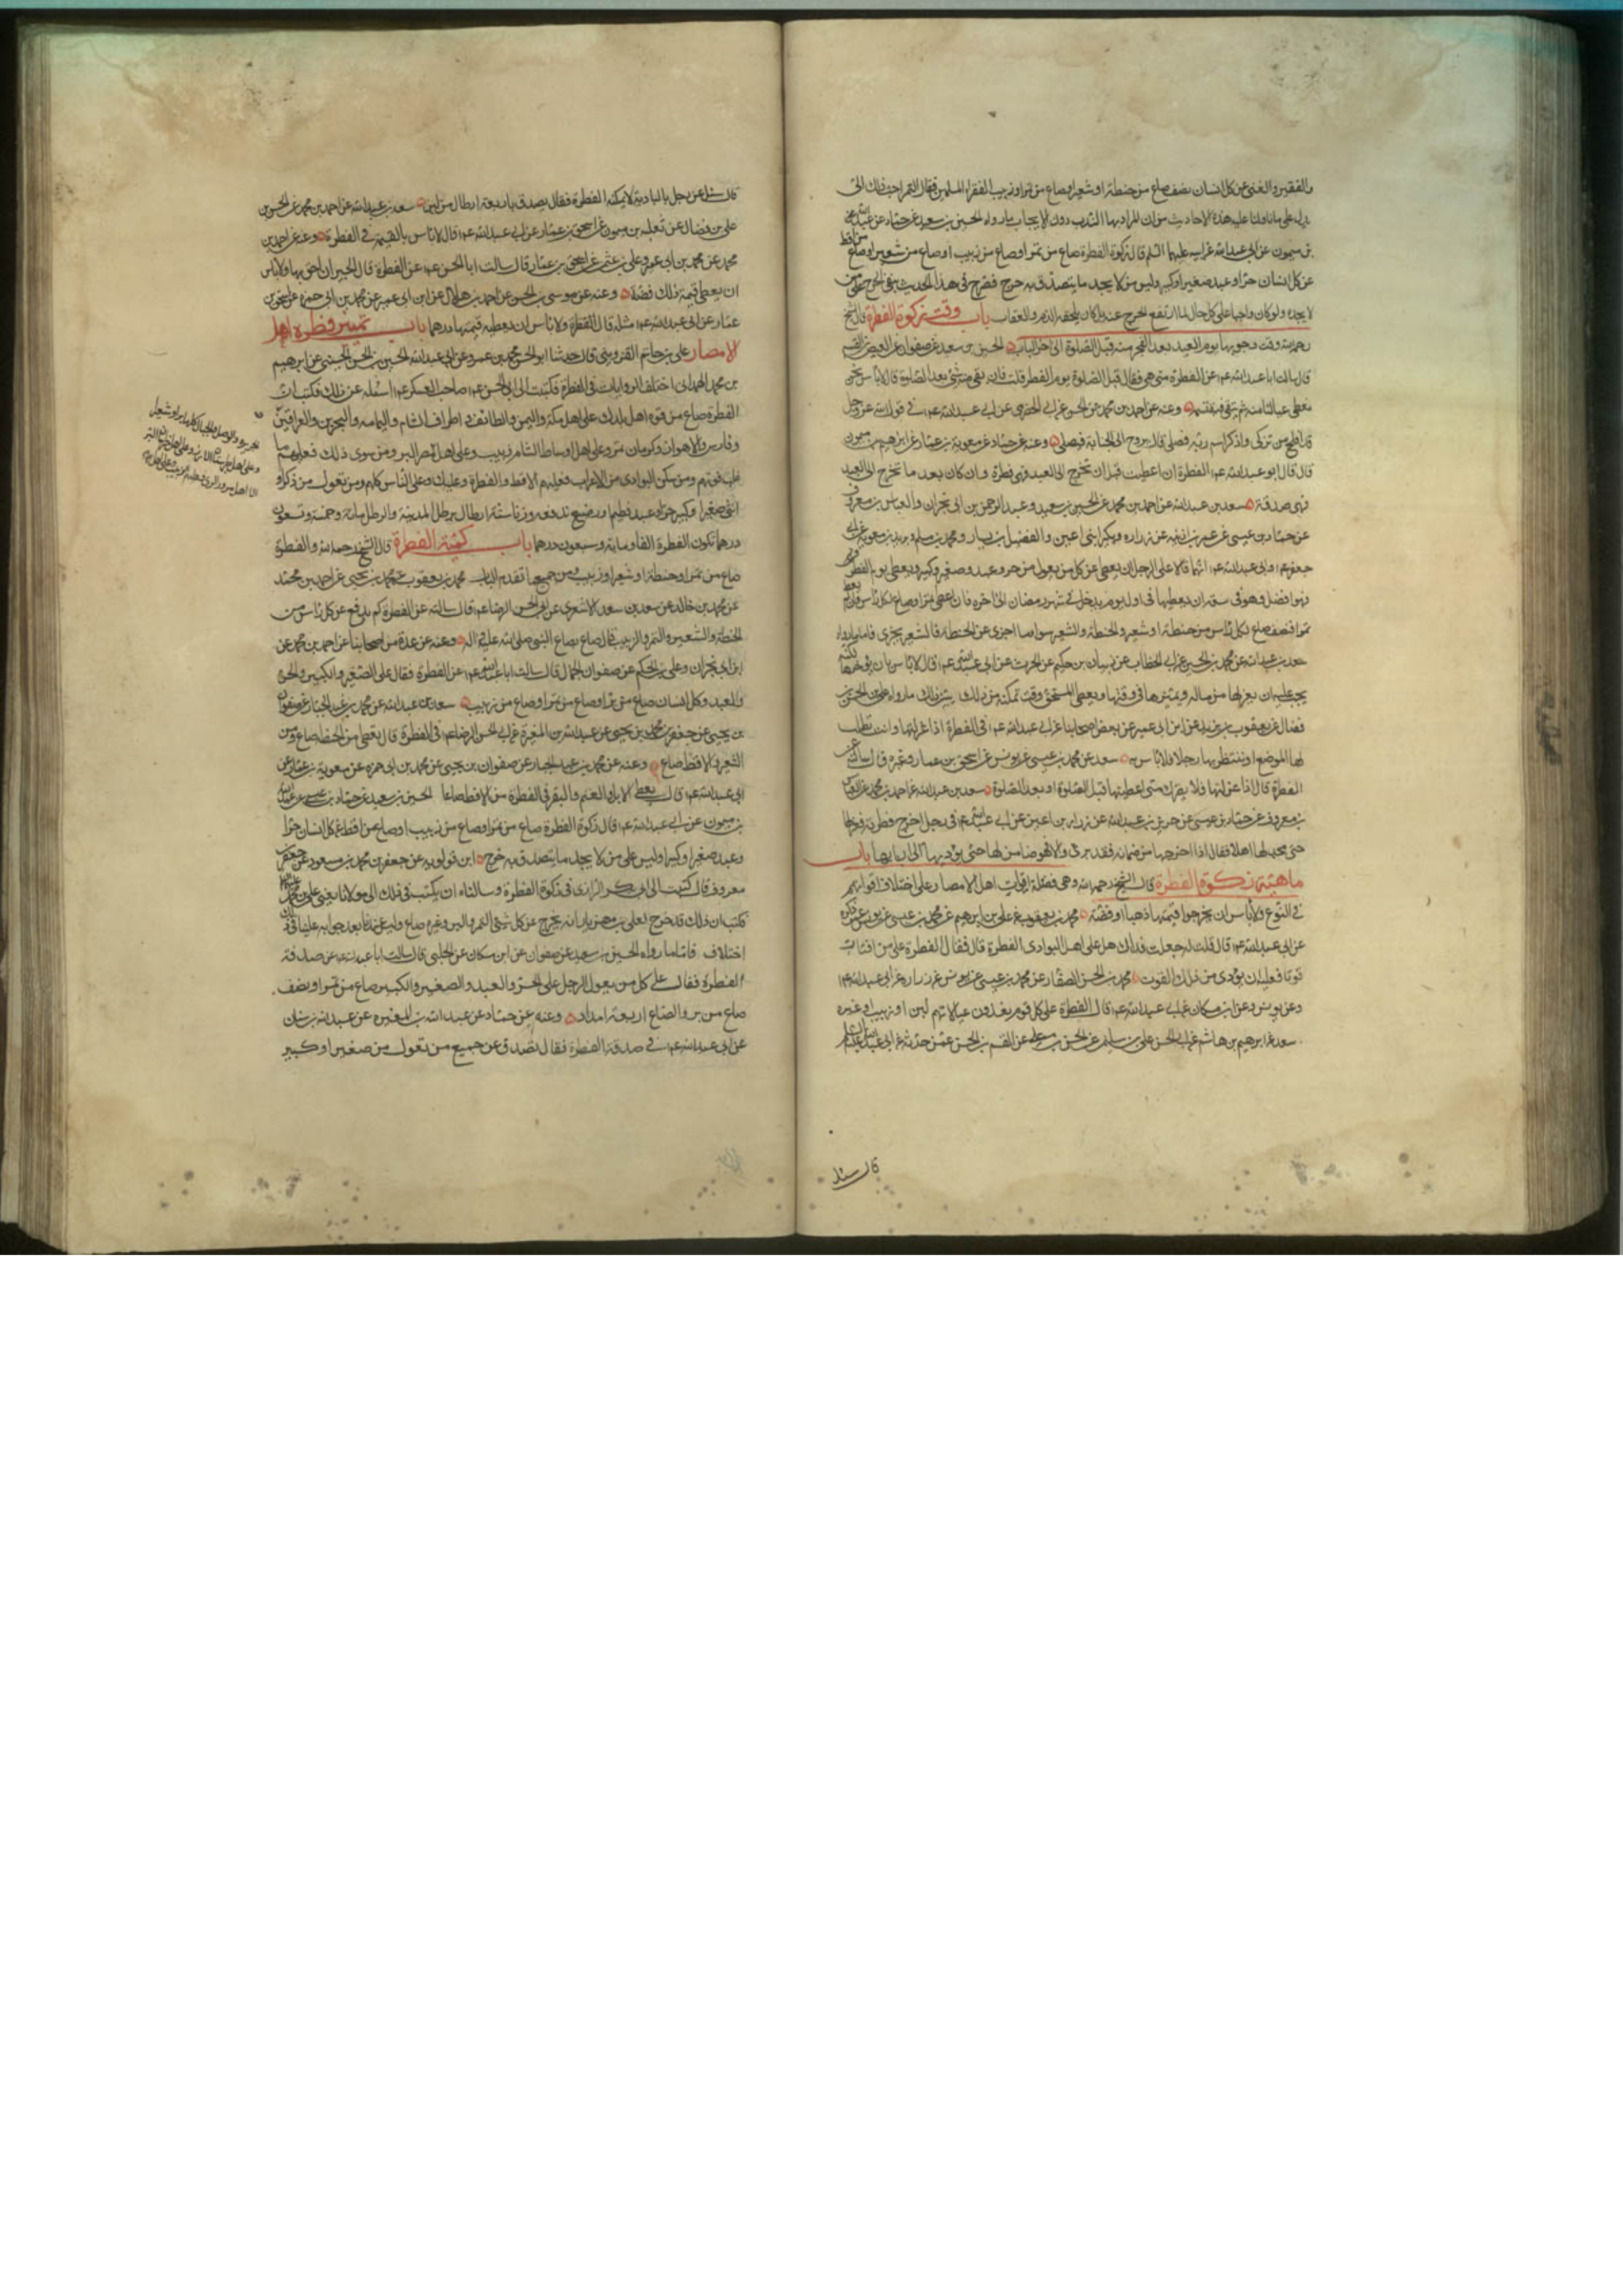 والفقير والغنى عن كل انسان نصف صاع من حنطة او شعير او صاع من تمر او زبيب لفقراء المسلمين فقال التمر احب ذلك الىّ
يدل على ما تاولنا عليه هذه الاحاديث من ان المراد بها الندب دون الايجاب ما رواه الحسين بن سعيد عن حماد عن عبد الله
بن ميمون عن ابى عبد الله عن ابيه عليهما السلم قال زكوة الفطرة صاع من تمر او صاع من زبيب او صاع من شعير او صاع من اقط
عن كل انسان حر او عبد صغير او كبير وليس من لا يجد ما يتصدق به حرج فصرح فى هذا الحديث بنفى الحرج على من
لا يجده ولو كان واجبا على كل حال لما ارتفع الحرج عنه بل كان يلحقه الذم والعقاب باب وقت زكوة الفطرة قال الشيخ
رحمه الله وقت وجوبها يوم العيد بعد الفجر منه قبل الصلوة الى اخر الباب الحسين بن سعيد عن صفوان عن العيص بن القسم
قال سالت ابا عبد الله ع عن الفطرة متى هى فقال قبل الصلوة يوم الفطر قلت فان بقى منه شئ بعد الصلوة قال لا باس نحن
نعطى عيالنا منه ثم يبقى فنقسمه وعنه عن احمد بن محمد عن الحسن عن ابى الحضرمى عن ابى عبد الله ع فى قول الله عز وجل
قد افلح من تزكى وذكر اسم ربه فصلى قال يروح الى الجبانة فيصلى وعنه عن حماد عن معوية بن عمار عن ابراهيم بن ميمون
قال قال ابو عبد الله ع الفطرة ان اعطيت قبل ان تخرج الى العيد فهى فطرة وان كان بعد ما تخرج الى العيد
فهى صدقة سعد بن عبد الله عن احمد بن محمد عن الحسين بن سعيد وعبد الرحمن بن ابى نجران والعباس بن معروف
عن حماد بن عيسى عن عمر بن اذينه عن زراره وبكير ابنى اعين والفضيل بن يسار ومحمد بن مسلم وبريد بن معوية عن ابى
جعفر ع وابى عبد الله ع انهما قالا على الرجل ان يعطى عن كل من يعول من حر وعبد وصغير وكبير ويعطى يوم الفطر
فهو افضل وهو فى سعة ان يعطيها فى اول يوم يدخل فى شهر رمضان الى اخره فان اعطى تمرا فصاع لكل راس وان لم يعط
تمرا فنصف صاع لكل راس من حنطة او شعير والحنطة والشعير سواء ما اجزى عن الحنطة فالشعير يجزى فاما ما رواه
سعد بن عبد الله عن محمد بن الحسين بن ابى الخطاب عن ذبيان بن حكيم عن الحرث عن ابى عبد الله ع قال لا باس بان يؤخرها
يجب عليه ان يعزلها من ماله ويميزها فى وقتها ويعطى المستحق وقت تمكنه من ذلك ما رواه على بن الحسن بن
فضال عن يعقوب بن يزيد عن ابن ابى عمير عن بعض اصحابنا عن ابى عبد الله ع فى الفطرة اذا عزلتها وانت تطلب
لها الموضع او تنتظر بها رجلا فلا باس به سعد عن محمد بن عيسى عن يونس عن اسحق بن عمار وغيره قال سالته عن
الفطرة قال اذا عزلتها فلا يضرك متى اعطيتها قبل الصلوة او بعد الصلوة سعد بن عبد الله عن احمد بن محمد عن العباس
بن معروف عن حماد بن عيسى عن حريز بن عبد الله عن زراره بن اعين عن ابى عبد الله ع فى رجل اخرج فطرته فعزلها
حتى يجد لها اهلا فقال اذا اخرجها من ضمانه فقد برئ والا فهو ضامن لها حتى يؤديها الى اربابها باب
ماهية زكوة الفطرة قال الشيخ رحمه الله وهى فضلة اقوات اهل الامصار على اختلاف اقواتهم
فى النوع ولا باس ان يخرجوا قيمتها ذهبا او فضة محمد بن يعقوب عن على بن ابراهيم عن محمد بن عيسى عن يونس عمن ذكره
عن ابى عبد الله ع قال قلت له جعلت فداك هل على اهل البوادى الفطرة قال فقال الفطرة على من اقتات
قوتا فعليه ان يؤدى من ذلك القوت محمد بن الحسن الصفار عن محمد بن عيسى عن يونس عن زراره عن ابى عبد الله ع
وعن يونس وعن ابن مسكان عن ابى عبد الله ع قال الفطرة على كل قوم يغذون عيالاتهم لبن او زبيب او غيره
سعد عن ابرهيم بن هاشم عن ابى الحسن على بن سليمن عن الحسن بن على عن القسم بن الحسن عمن حدثه عن ابى عبد الله ع
قال سئل
قال سئل عن رجل بالبادية لا يمكنه الفطرة فقال يصدق باربعة ارطال من لبن سعد بن عبد الله عن احمد بن محمد عن الحسن بن
على بن فضال عن ثعلبه بن ميمون عن اسحق بن عمار عن ابى عبد الله ع قال لا باس بالقيمة فى الفطرة وعنه عن احمد بن
محمد عن محمد بن ابى عمير وعلى بن عثمن عن اسحق بن عمار قال سالت ابا الحسن ع عن الفطرة قال الجيران احق بها ولا باس
ان يعطى قيمة ذلك فضة وعنه عن موسى بن الحسن عن احمد بن هلال عن ابن ابى عمير عن محمد بن ابى حمزه عن اسحق بن
عمار عن ابى عبد الله ع مثله قال الفطرة ولا باس ان يعطيه قيمتها درهما باب تمييز فطرة اهل
الامصار على بن حاتم القزوينى قال حدثنا ابو الحسن محمد بن عمرو عن ابى عبد الله الحسين بن الحسن الحسينى عن ابرهيم
بن محمد الهمدانى اختلف الروايات فى الفطرة فكتبت الى ابى الحسن ع صاحب العسكر ع اسئله عن ذلك فكتب ان
الفطرة صاع من قوت اهل بلدك على اهل مكة واليمن والطائف واطراف الشام واليمامه والبحرين والعراقين
وفارس والاهواز وكرمان تمر وعلى اهل اوساط الشام زبيب وعلى اهل مصر البر ومن سوى ذلك فعليهم ما
غلب قوتهم ومن سكن البوادى من الاعراب فعليهم الاقط والفطرة وعليك وعلى الناس كلهم ومن تعول من ذكر او
انثى صغيرا وكبير حر او عبد فطيم او رضيع تدفعه وزنا ستة ارطال برطل المدينة والرطل مائة وخمسة وتسعون
درهما تكون الفطرة الفا ومایة وسبعون درهما باب كمية الفطرة قال الشيخ رحمه الله والفطرة
صاع من تمر او حنطة او شعير او زبيب ومن جميع ما تقدم الباب محمد بن يعقوب عن محمد بن يحيى عن احمد بن محمد
عن محمد بن خالد عن سعد بن سعد الاشعرى عن ابى الحسن الرضا ع قال سالته عن الفطرة كم يدفع عن كل راس من
الحنطة والشعير والتمر والزبيب قال صاع بصاع النبى صلى الله عليه واله وعنه عن عدة من اصحابنا عن احمد بن محمد عن
ابن ابى نجران وعلى بن الحكم عن صفوان الجمال قال سالت ابا عبد الله ع عن الفطرة فقال على الصغير والكبير والحر
والعبد وكل انسان صاع من بر او صاع من تمر او صاع من زبيب سعد بن عبد الله عن محمد بن عبد الجبار عن صفوان
بن يحيى عن جعفر بن محمد بن يحيى عن عبد الله بن المغيرة عن ابى الحسن الرضا ع فى الفطرة قال يعطى من الحنطة صاع ومن
الشعير والاقط صاع وعنه عن محمد بن عبد الجبار عن صفوان بن يحيى عن محمد بن ابى حمزه عن معوية بن عمار عن
ابى عبد الله ع قال يعطى الابل والغنم والبقر فى الفطرة من الاقط صاعا الحسين بن سعيد عن حماد بن عيسى عن عبد الله
بن ميمون عن ابى عبد الله ع قال زكوة الفطرة صاع من تمر او صاع من زبيب او صاع من اقط عن كل انسان حر او
وعبد صغير او كبير وليس على من لا يجد ما يتصدق به حرج ابن قولويه عن جعفر بن محمد بن مسعود عن جعفر بن
معروف قال كتبت الى ابى بكر الرازى فى زكوة الفطرة وسالناه ان يكتب فى ذلك الى مولانا يعنى على بن محمد
فكتب ان ذلك قد خرج لعلى بن مهزيار انه يخرج عن كل شئ التمر والبر وغيره صاع وليس عندنا بعد جوابه علينا فى ذلك
اختلاف فاما ما رواه الحسين بن سعيد عن صفوان عن ابن مسكان عن الحلبى قال سالت ابا عبد الله ع عن صدقة
الفطرة فقال على كل من يعول الرجل على الحر والعبد والصغير والكبير صاع من تمر او نصف
صاع من بر والصاع اربعة امداد وعنه عن حماد عن عبد الله بن المغيره عن عبد الله بن سنان
عن ابى عبد الله ع فى صدقة الفطرة فقال تصدق عن جميع من تعول من صغير او كبير